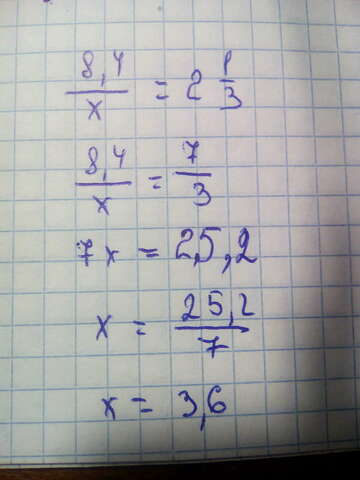 8,4/x = 2 1/3
8,4/x = 7/3
7x = 25,2
x = 25,2/7
x = 3,6